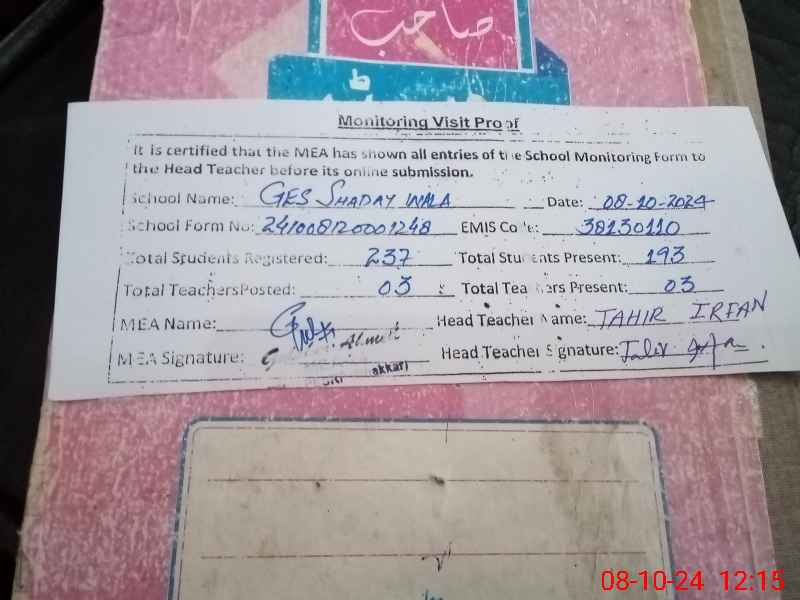 صاحب
Monitoring Visit Proof
It is certified that the MEA has shown all entries of the School Monitoring Form to
the Head Teacher before its online submission.
School Name: GES SHADAY WALA Date: 08-10-2024
School Form No: 241008120001248 EMIS Code: 38130110
Total Students Registered: 237 Total Students Present: 193
Total Teachers Posted: 03 Total Teachers Present: 03
MEA Name: Head Teacher Name: TAHIR IRFAN
MEA Signature: Ahmed Head Teacher Signature: Tahir
akkar)
08-10-24 12:15